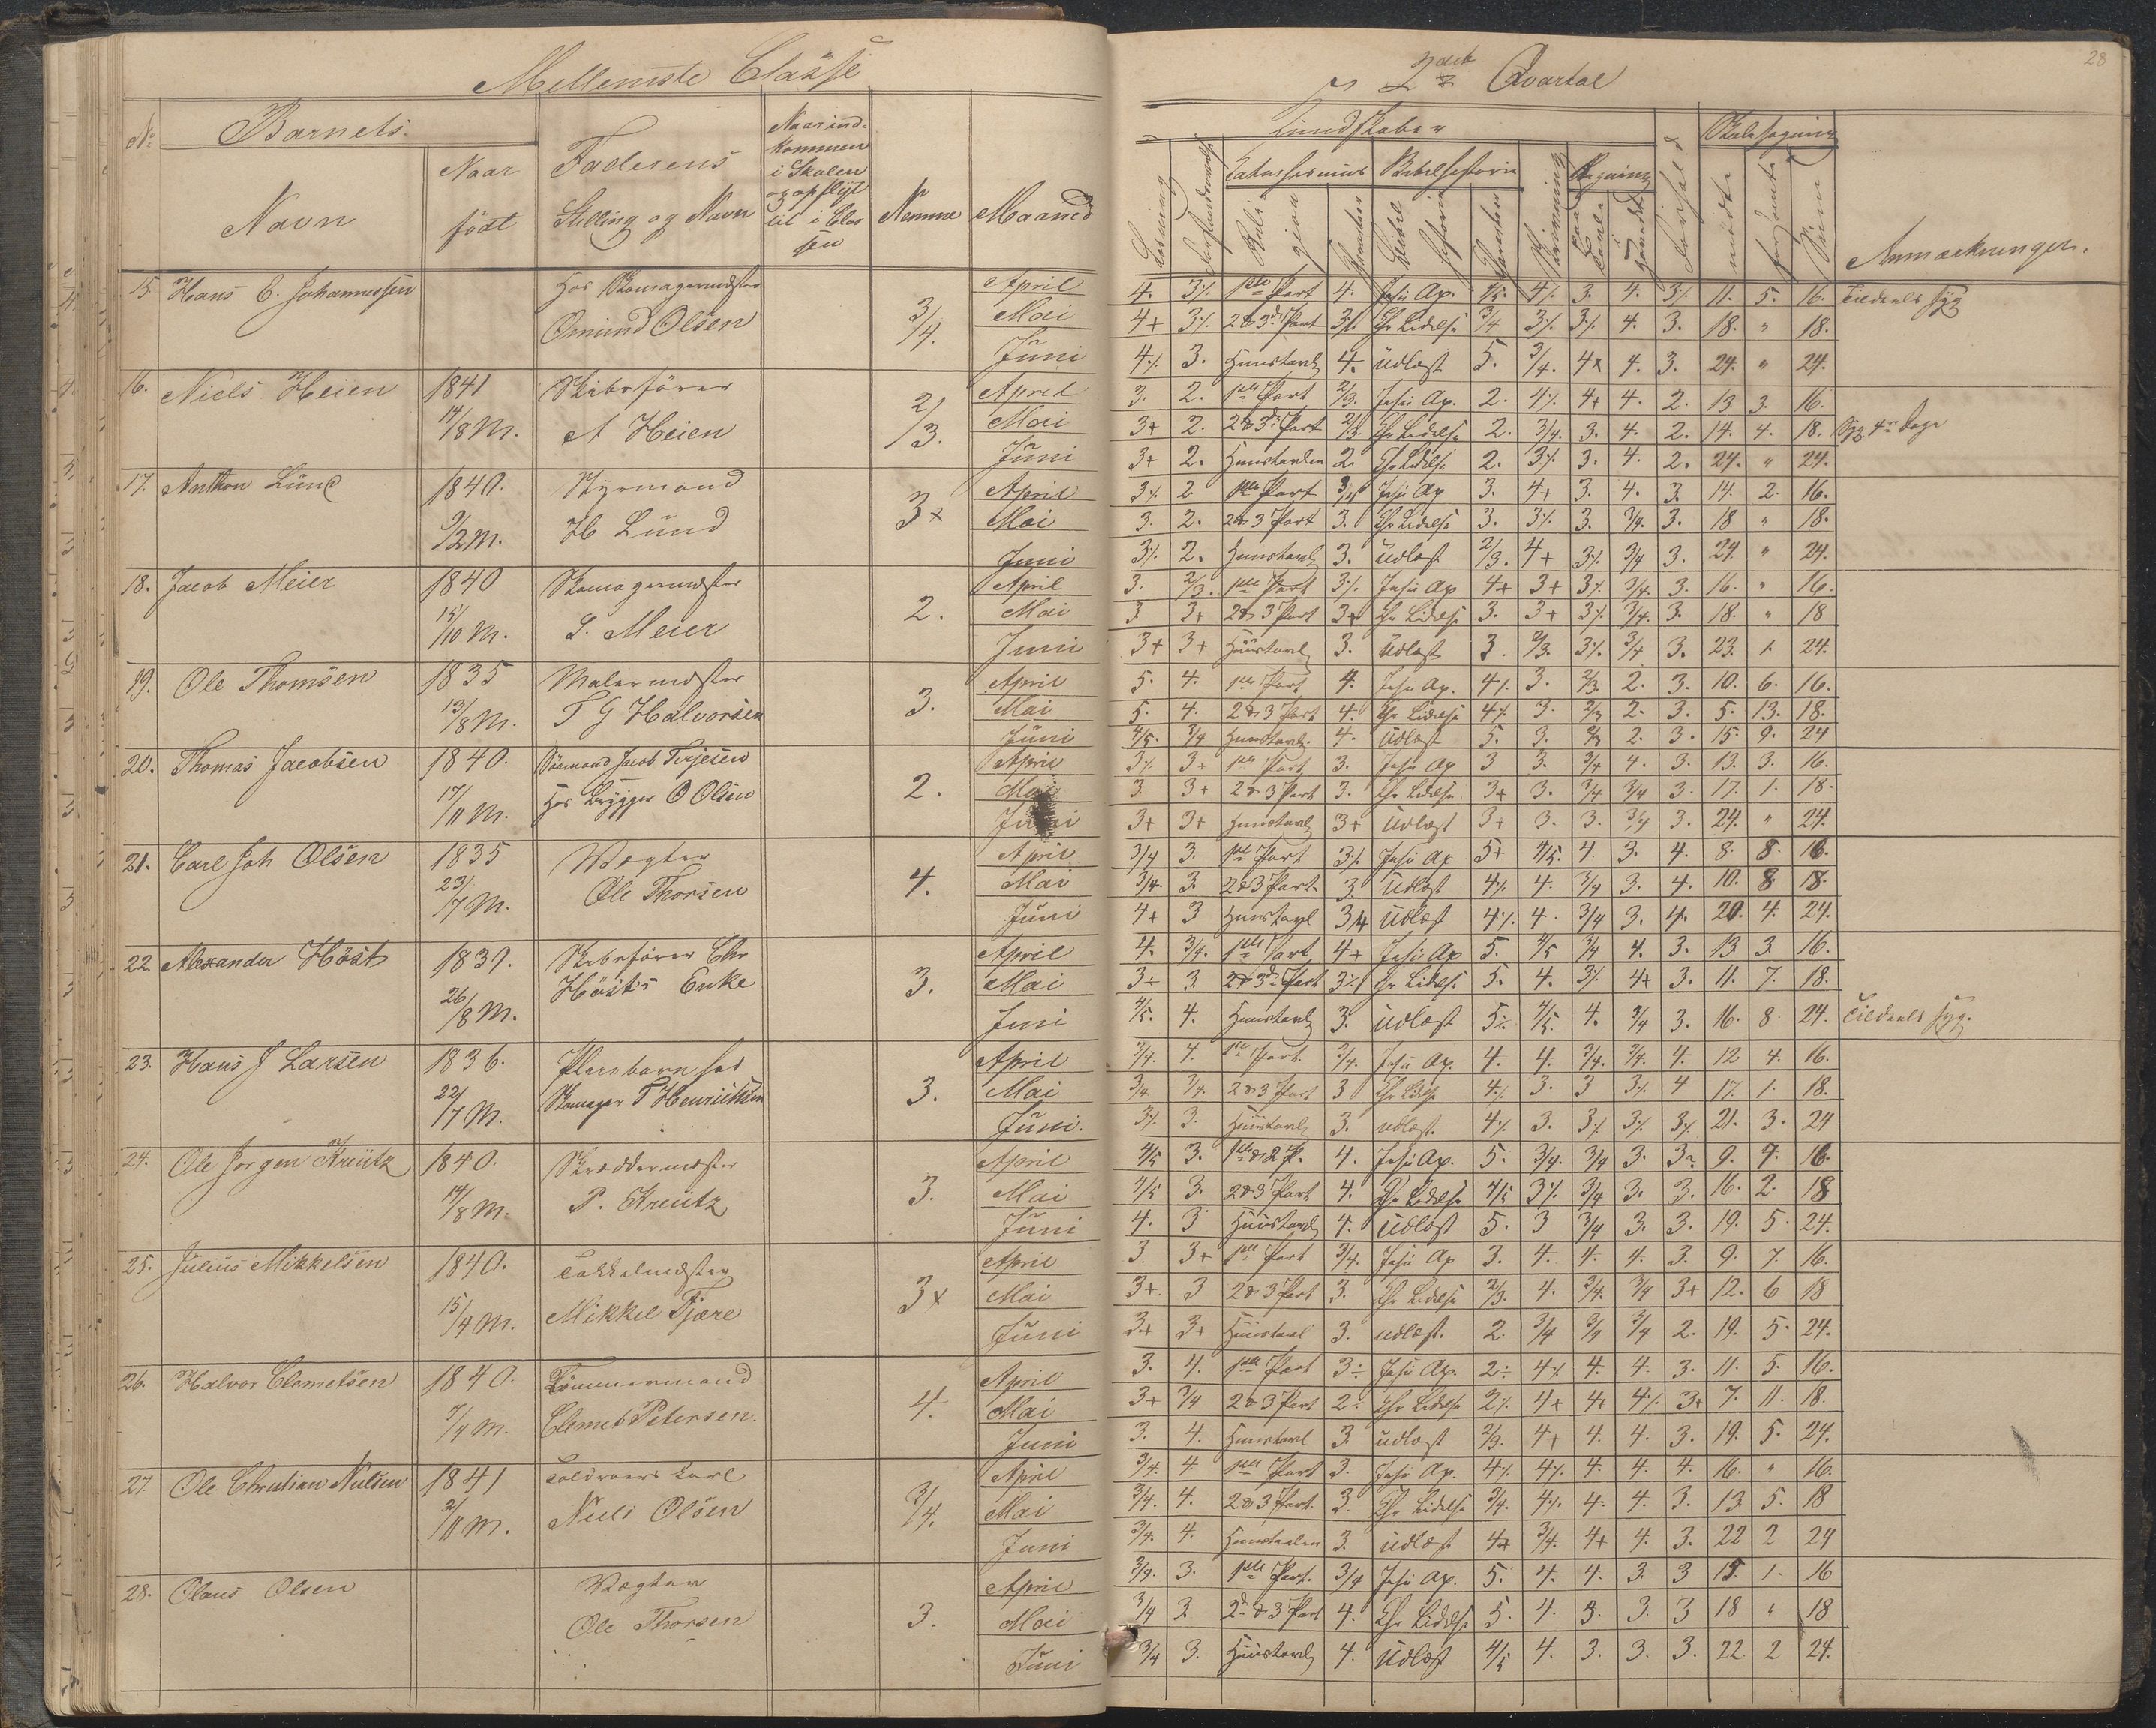 Mellemste Classe
i 2det Qvartal
28
No Barnets Navn Naar födt Faderens Stilling og Navn Naar indkommen i Skolen og opflyt til i Classen Nemme Maaned
Kundskaber Skolesøgning
Læsning Forstandsøvelse Catechismus Bibelhistorie Skrivning Regning Forhold mødte forsømte Sum Anmærkninger.
Religion Karakter Bibelhistorie Karakter paa Tavle i Hovedet
15. Hans C. Johannessen Hos Skomagermester 3/4. April 4. 3% 1ste Part 4. Jesu Ap. 4/5. 4% 3. 4. 3% 11. 5. 16. Tildeels syg
Omund Olsen Mai 4+ 3% 2 & 3die Part 3% Chr Lidelse 3/4 3% 3% 4. 3. 18. " 18.
Juni 4% 3. Huustavle 4. udlæst 5. 3/4. 4+ 4. 3. 24. " 24.
16. Niels Heien 1841 Skibsfører 2/3. April 3. 2. 1ste Part 2/3. Jesu Ap. 2. 4% 4+ 4. 2. 13. 3. 16.
14/8 M. A Heien Mai 3+ 2. 2 & 3die Part 2/3. Chr Lidelse 2. 3/4. 3. 4. 2. 14. 4. 18. Syg 4re Dage
Juni 3+ 2. Huustavlen 2. Chr Lidelse 2. 3% 3. 4. 2. 24. " 24.
17. Anthon Lund 1840. Styrmand 3+ April 3% 2 1ste Part 3/4 Jesu Ap 3. 4+ 3. 4. 3. 14. 2. 16.
9/2 M. H Lund Mai 3. 2. 2 & 3 Part 3. Chr Lidelse 3. 3% 3. 3/4. 3. 18 " 18.
Juni 3% 2. Huustavle 3. Udlæst 2/3. 4+ 3% 3/4 3. 24. " 24.
18. Jacob Meier 1840 Skomagermester 2. April 3. 2/3. 1ste Part 3% Jesu Ap 4+ 3+ 3% 3/4. 3. 16. " 16.
15/10 M. S. Meier Mai 3 3+ 2 & 3 Part 3+ Chr Lidelse 3. 3+ 3% 3/4. 3. 18. " 18
Juni 3+ 3+ Huustavle 3. Udlæst 3. 2/3. 3% 3/4 3. 23. 1. 24.
19. Ole Thomsen 1835 Malermester 3. April 5. 4. 1ste Part 4. Jesu Ap. 4% 3. 2/3. 2. 3. 10. 6. 16.
13/8 M. T G Halvorsen Mai 5. 4. 2 & 3 Part 4. Chr Lidelse 4% 3. 2/3 2. 3. 5. 13. 18.
Juni 4/5. 3/4 Huustavle 4. Udlæst 5. 3. 2/3 2. 3. 15. 9. 24
20. Thomas Jacobsen 1840. Sømand Jacob Terjesen 2. April 3% 3+ 1ste Part 3. Jesu Ap 3 3. 3/4 4. 3. 13. 3. 16.
17/11 M. Hos Brygger O Olsen Mai 3. 3+ 2 & 3 Part 3. Chr Lidelse 3+ 3. 3/4 3/4 3. 17. 1. 18.
Juni 3+ 3+ Huustavle 3+ Udlæst 3+ 3. 3. 3/4 3. 24. " 24.
21. Carl Joh Olsen 1835 Vægter 4. April 3/4 3. 1ste Part 3% Jesu Ap 5+ 4/5. 4. 3. 4. 8. 8. 16.
23/7 M. Ole Thorsen Mai 3/4. 3. 2 & 3 Part 3. Udlæst 4% 4. 3/4 3. 4. 10. 8 18.
Juni 4+ 3 Huustavl 3/4 Udlæst 4% 4. 3/4 3. 4. 20. 4. 24.
22. Alexander Höst 1839. Skibsfører Chr 3. April 4. 3/4. 1ste Part 4+ Jesu Ap 5. 4/5 3/4 4. 3. 13. 3. 16.
26/8 M. Hösts Enke Mai 3÷ 3. 2 & 3die Part 3% Chr Lidelse 5. 4. 3% 4+ 3. 11. 7. 18.
Juni 4/5. 4. Huustavle 3. Udlæst 5% 4/5. 4. 3/4 3. 16. 8. 24. Tildeels syg.
23. Hans J Larsen 1836. Pleiebarn hos 3. April 3/4. 4. 1ste Part 3/4. Jesu Ap. 4. 4. 3/4. 3/4. 4. 12. 4. 16.
22/7 M. Skomager T Henrichsen Mai 3/4 3/4. 2 & 3 Part 3 Chr Lidelse 4% 3. 3 3% 4 17. 1. 18.
Juni. 3% 3. Huustavle 3. udlæst. 4% 3. 3% 3% 3% 21. 3. 24
24. Ole Jørgen Kreütz 1840. Skræddermester 3. April 4/5 3. 1ste & 2 P. 4. Jesu Ap. 5. 3/4. 3/4 3. 3. 9. 7. 16.
14/8 M. P. Kreütz Mai 4/5 3. 2 & 3 Part 4. Chr Lidelse 4/5 3% 3/4 3. 3. 16. 2. 18
Juni 4. 3 Huustavle 4. Udlæst 5. 3 3/4 3. 3. 19. 5. 24.
25. Julius Mikkelsen 1840. Takkelmester 3+ April 3. 3+ 1ste Part 3/4. Jesu Ap 3. 4. 4. 4. 3. 9. 7. 16.
15/4 M. Mikkel Tjære Mai 3+. 3 2 & 3 Part 3. Chr Lidelse 2/3. 4. 3/4. 3/4 3+ 12. 6 18
Juni 3+ 3+ Huustavl 3. udlæst. 2. 3/4 3/4 3/4 2. 19. 5. 24.
26. Halvor Clemetsen 1840. Tömmermand 4. April 3. 4. 1ste Part 3÷ Jesu Ap. 2÷ 4% 4. 4. 3. 11. 5. 16.
7/4 M. Clemet Petersen. Mai 3+ 3/4 2 & 3 Part 2÷ Chr Lidelse 2% 4+ 4+ 4% 3+ 7. 11. 18.
Juni 3. 4. Huustavl 3. udlæst 2/3. 4+ 4. 4. 3. 19. 5. 24.
27. Ole Christian Nielsen 1841 Toldroers Karl 3/4. April 3/4. 4. 1ste Part 3. Jesu Ap. 4% 4% 4. 4. 4. 16. " 16.
2/11 M. Niels Olsen Mai 3/4. 4. 2 & 3 Part. 3. Chr Lidelse 3/4. 4% 4. 4. 3. 13. 5. 18
Juni 3/4. 4. Huustavlen 3. udlæst 4+ 3/4. 4+ 4. 3. 22 2 24
28. Olaus Olsen Vægter 3. April 3/4. 3. 1ste Part. 3/4 Jesu Ap. 5. 4. 4. 3. 3 15. 1. 16
Ole Thorsen Mai 3/4 3 2d & 3 Part 4. Chr Lidelse 5. 4. 3. 3. 3 18 " 18
Juni 3/4 3. Huustavle 4. Udlæst 4/5 4. 3. 3. 3. 22. 2 24.